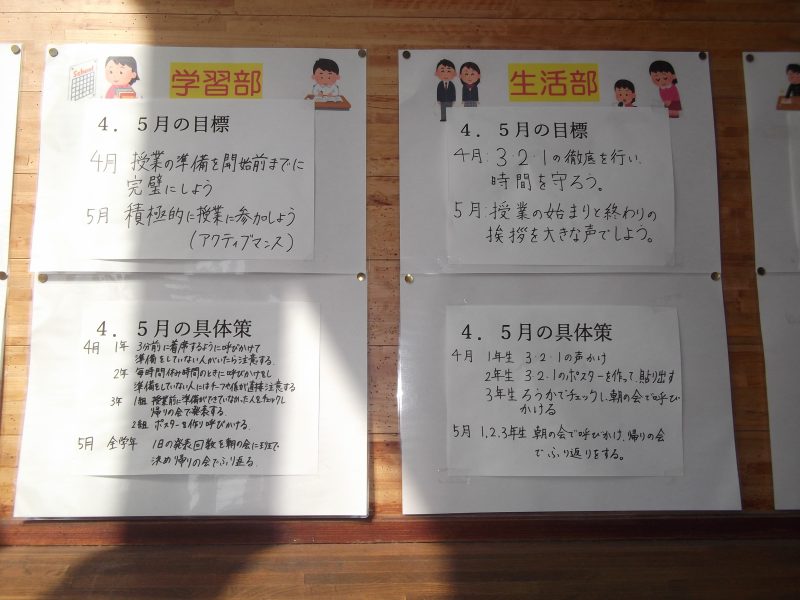 School
学習部
4．5月の目標
4月 授業の準備を開始前までに
完璧にしよう
5月 積極的に授業に参加しよう
(アクティブマンス)
4．5月の具体策
4月 1年 3分前に着席するように呼びかけて
準備をしていない人がいたら注意する.
2年 毎時間休み時間のときに呼びかけをし
準備をしていない人にはチーフや係が直接注意する
3年 1組 授業前に準備ができていなかった人をチェックし
帰りの会で発表する.
2組 ポスターを作り呼びかける.
5月 全学年 1日の発表回数を朝の会に班で
決め帰りの会でふり返る.
生活部
4．5月の目標
4月:3·2·1の徹底を行い、
時間を守ろう。
5月:授業の始まりと終わりの
挨拶を大きな声でしよう。
4．5月の具体策
4月 1年生 3·2·1の声かけ
2年生 3·2·1のポスターを作って、貼り出す
3年生 ろうかでチェックし、朝の会で呼び
かける
5月 1,2,3年生 朝の会で呼びかけ、帰りの会
でふり返りをする。